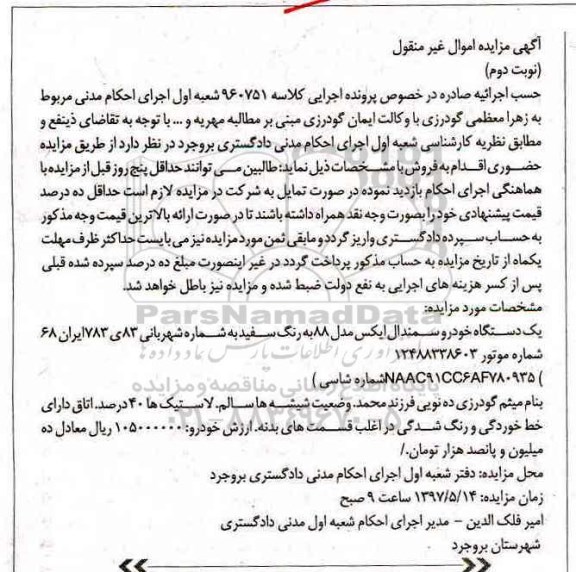 آگهی مزایده اموال غیر منقول
(نوبت دوم)
حسب اجرائیه صادره در خصوص پرونده اجرایی کلاسه ۹۶۰۷۵۱ شعبه اول اجرای احکام مدنی مربوط
به زهرا معظمی گودرزی با وکالت ایمان گودرزی مبنی بر مطالبه مهریه و ... با توجه به تقاضای ذینفع و
مطابق نظریه کارشناسی شعبه اول اجرای احکام مدنی دادگستری بروجرد در نظر دارد از طریق مزایده
حضوری اقدام به فروش با مشخصات ذیل نماید: طالبین می توانند حداقل پنج روز قبل از مزایده با
هماهنگی اجرای احکام بازدید نموده در صورت تمایل به شرکت در مزایده لازم است حداقل ده درصد
قیمت پیشنهادی خود را بصورت وجه نقد همراه داشته باشند تا در صورت ارائه بالاترین قیمت وجه مذکور
به حساب سپرده دادگستری واریز گردد و مابقی ثمن مورد مزایده نیز می بایست حداکثر ظرف مهلت
یکماه از تاریخ مزایده به حساب مذکور پرداخت گردد در غیر اینصورت مبلغ ده درصد سپرده شده قبلی
پس از کسر هزینه های اجرایی به نفع دولت ضبط شده و مزایده نیز باطل خواهد شد.
ParsNamadData
مشخصات مورد مزایده:
یک دستگاه خودرو سمندال ایکس مدل ۸۸ به رنگ سفید به شماره شهربانی ۸۳ی۷۸۳ ایران ۶۸
شماره موتور ۱۲۴۸۸۳۳۸۶۰۳
) NAAC۹۱CC۶AF۷۸۰۹۳۵شماره شاسی )
بنام میثم گودرزی ده نویی فرزند محمد. وضعیت شیشه ها سالم. لاستیک ها ۴۰درصد. اتاق دارای
خط خوردگی و رنگ شدگی در اغلب قسمت های بدنه. ارزش خودرو: ۱۰۵۰۰۰۰۰۰ ریال معادل ده
میلیون و پانصد هزار تومان./
محل مزایده: دفتر شعبه اول اجرای احکام مدنی دادگستری بروجرد
زمان مزایده: ۱۳۹۷/۵/۱۴ ساعت ۹ صبح
امیر فلک الدین - مدیر اجرای احکام شعبه اول مدنی دادگستری
شهرستان بروجرد